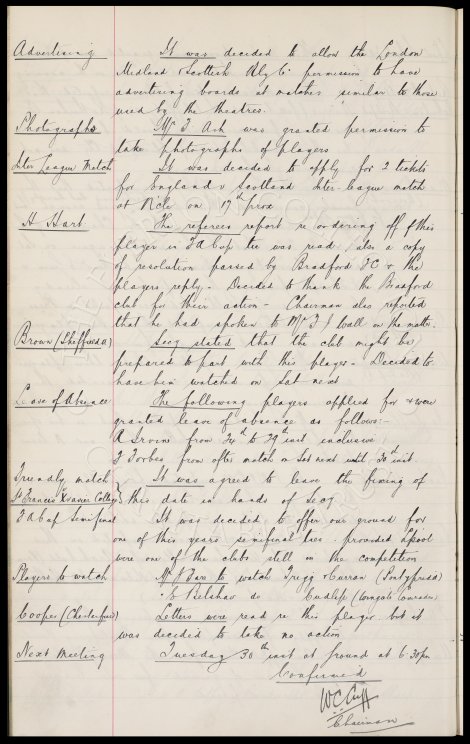 Advertising It was decided to allow the London
Midland & Scottish Rly Co permission to have
advertising boards at matches similar to those
used by the theatres.
Photographs Mr J Ash was granted permission to
take photographs of players
Inter League Match It was decided to apply for 2 tickets
for England v Scotland Inter-league match
at N'cle on 17th prox
H Hart The referees report re ordering off of this
player in F A Cup tie was read, also a copy
of resolution passed by Bradford F C & the
players reply. Decided to thank the Bradford
club for their action - Chairman also reported
that he had spoken to Mr F J Wall on the matter.
Brown (Sheffield U) Secy stated that the club might be
prepared to part with this player. Decided to
have him watched on Sat next
Leave of Absence The following players applied for & were
granted leave of absence as follows:-
A Irvin from 24th to 29th inst inclusive
J Forbes from after match on Sat next until 30th inst.
Friendly match It was agreed to leave the fixing of
St Francis Xavier College } this date in hands of Secy
F A Cup Semi final It was decided to offer our ground for
one of this years semifinal ties provided Lpool
were one of the clubs still in the competition
Players to watch Mr to watch Tregg & Curran (Pontypridd)
" Kelshaw do Cudlip (Wingate Comrades)
Cooper (Chesterfield) Letters were read re this player but it
was decided to take no action
Next Meeting Tuesday 30th inst at ground at 6.30pm
Confirmed
W C Cuff
Chairman